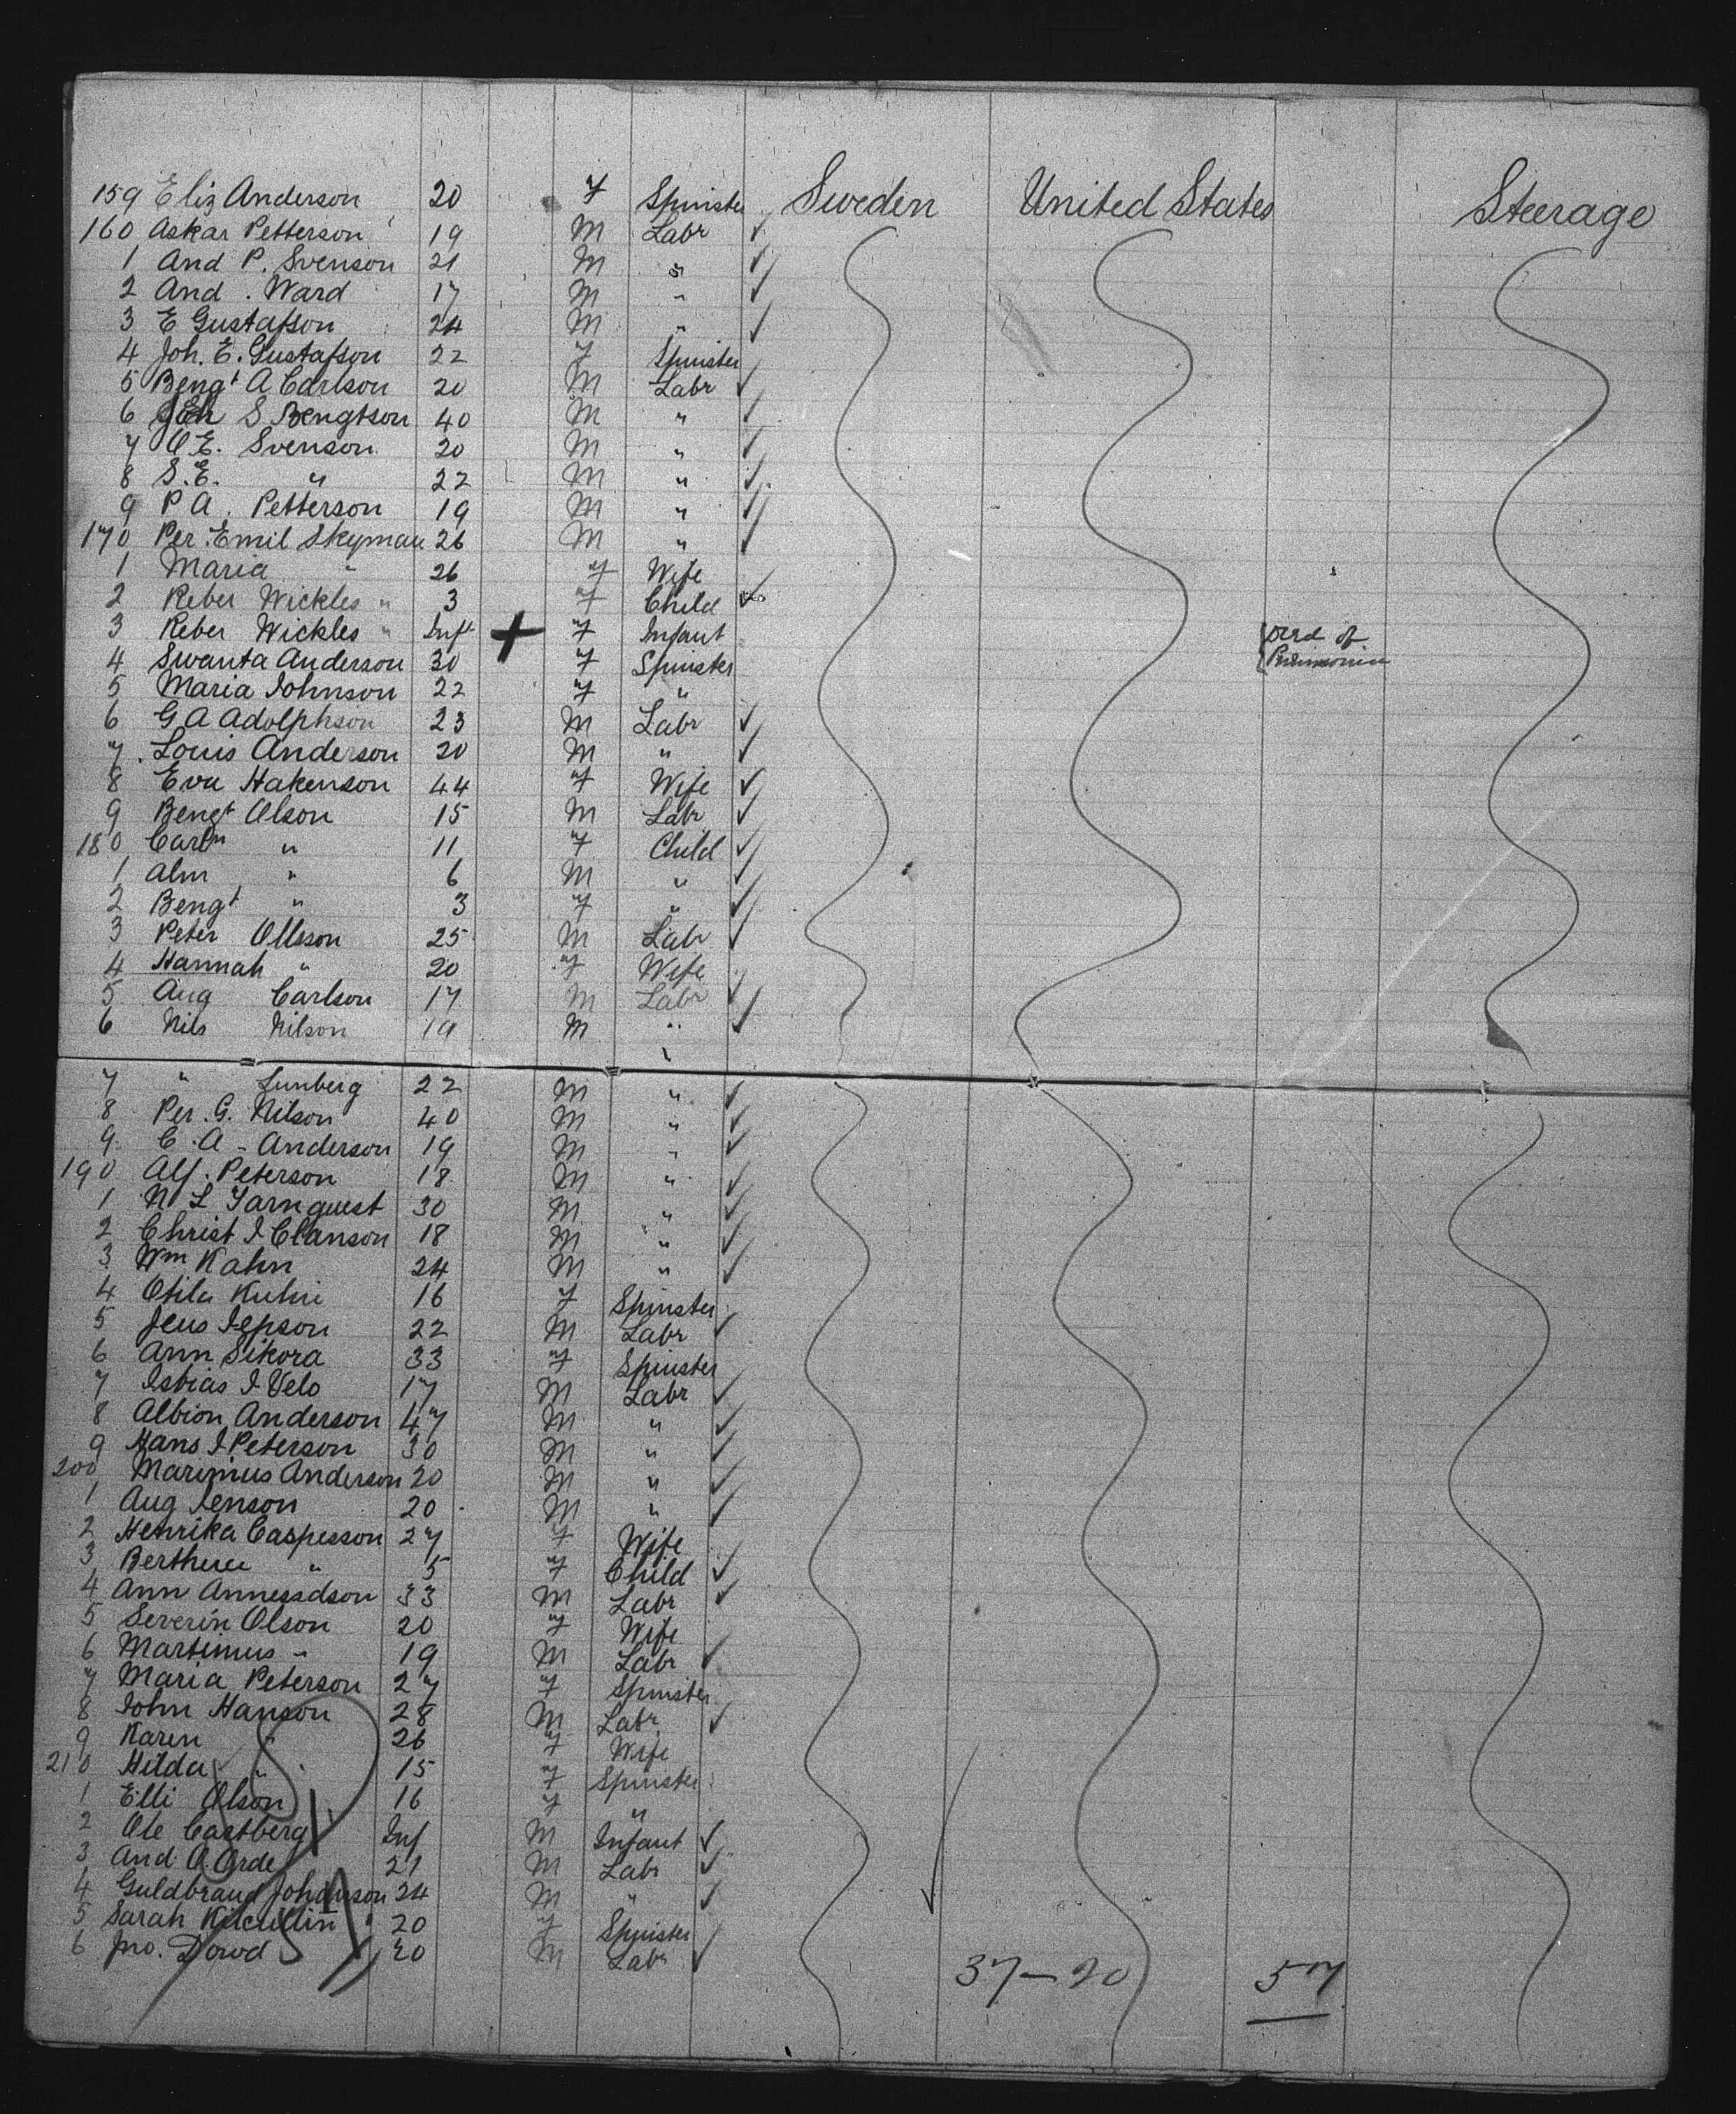 159 Eliz Anderson 20 f Spinster Sweden United States Steerage
160 Askar Petterson 19 M Labr
1 And P. Svenson 21 M "
2 And. Ward 17 M "
3 E Gustafson 24 M "
4 Joh. E. Gustafson 22 f Spinster
5 Bengt A Carlson 20 M Labr
6 Joh S Bengtson 40 M "
7 O E. Svenson 20 M "
8 S. E. " 22 M "
9 P A. Petterson 19 M "
170 Per Emil Skyman 26 M "
1 Maria " 26 f Wife
2 Reber Wickles " 3 f Child
3 Reber Wickles " Inft + f Infant Died of
4 Swanta Anderson 30 f Spinster Pneumonia
5 Maria Johnson 22 f "
6 G A Adolphson 23 M Labr
7 Louis Anderson 20 M "
8 Eva Hakenson 44 f Wife
9 Bengt Olson 15 M Labr
180 Carln " 11 f Child
1 Alm " 6 M "
2 Bengt " 3 f "
3 Peter Ollsson 25 M Labr
4 Hannah " 20 f Wife
5 Aug Carlson 17 M Labr
6 Nils Nilson 19 M "
7 " Lunberg 22 M "
8 Per. G. Nilson 40 M "
9 C. A - Anderson 19 M "
190 Alf. Peterson 18 M "
1 N L Tarnquest 30 M "
2 Christ I Clanson 18 M "
3 Wm Kahn 24 M "
4 Otila 16 f Spinster
5 Jens Jepson 22 M Labr
6 Ann Sikora 33 f Spinster
7 Isbias I Velo 17 M Labr
8 Albion Anderson 47 M "
9 Hans I Peterson 30 M "
200 Marinius Anderson 20 M "
1 Aug Jenson 20 M "
2 Henrika Caspesson 27 f Wife
3 " 5 f Child
4 Ann Annessdson 33 M Labr
5 Severin Olson 20 f Wife
6 Martinus " 19 M Labr
7 Maria Peterson 27 f Spinster
8 John Hanson 28 M Labr
9 Karen " 26 f Wife
210 Hilda " 15 f Spinster
1 Elli Olson 16 f "
2 Ole Castberg Inf M Infant
3 And O. Orde 21 M Labr
4 Guldbrand Johanson 24 M "
5 Sarah Kilcullin 20 f Spinster
6 Jno. Dowd 20 M Labr
37 - 20 57